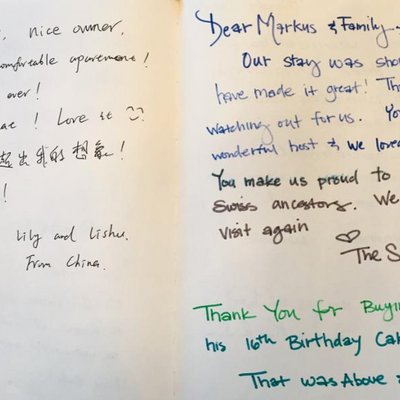 , nice owner.
comfortable apartment!
ever!
! Love it
超出我的想象!
!
Lily and Lishu.
From China.
Dear Markus & Family,
Our stay was sho
have made it great! Th
watching out for us. Yo
wonderful host & we love
You make us proud to
Swiss ancestors. We
visit again
The S
Thank You for Buyin
his 16th Birthday Cak
That was Above